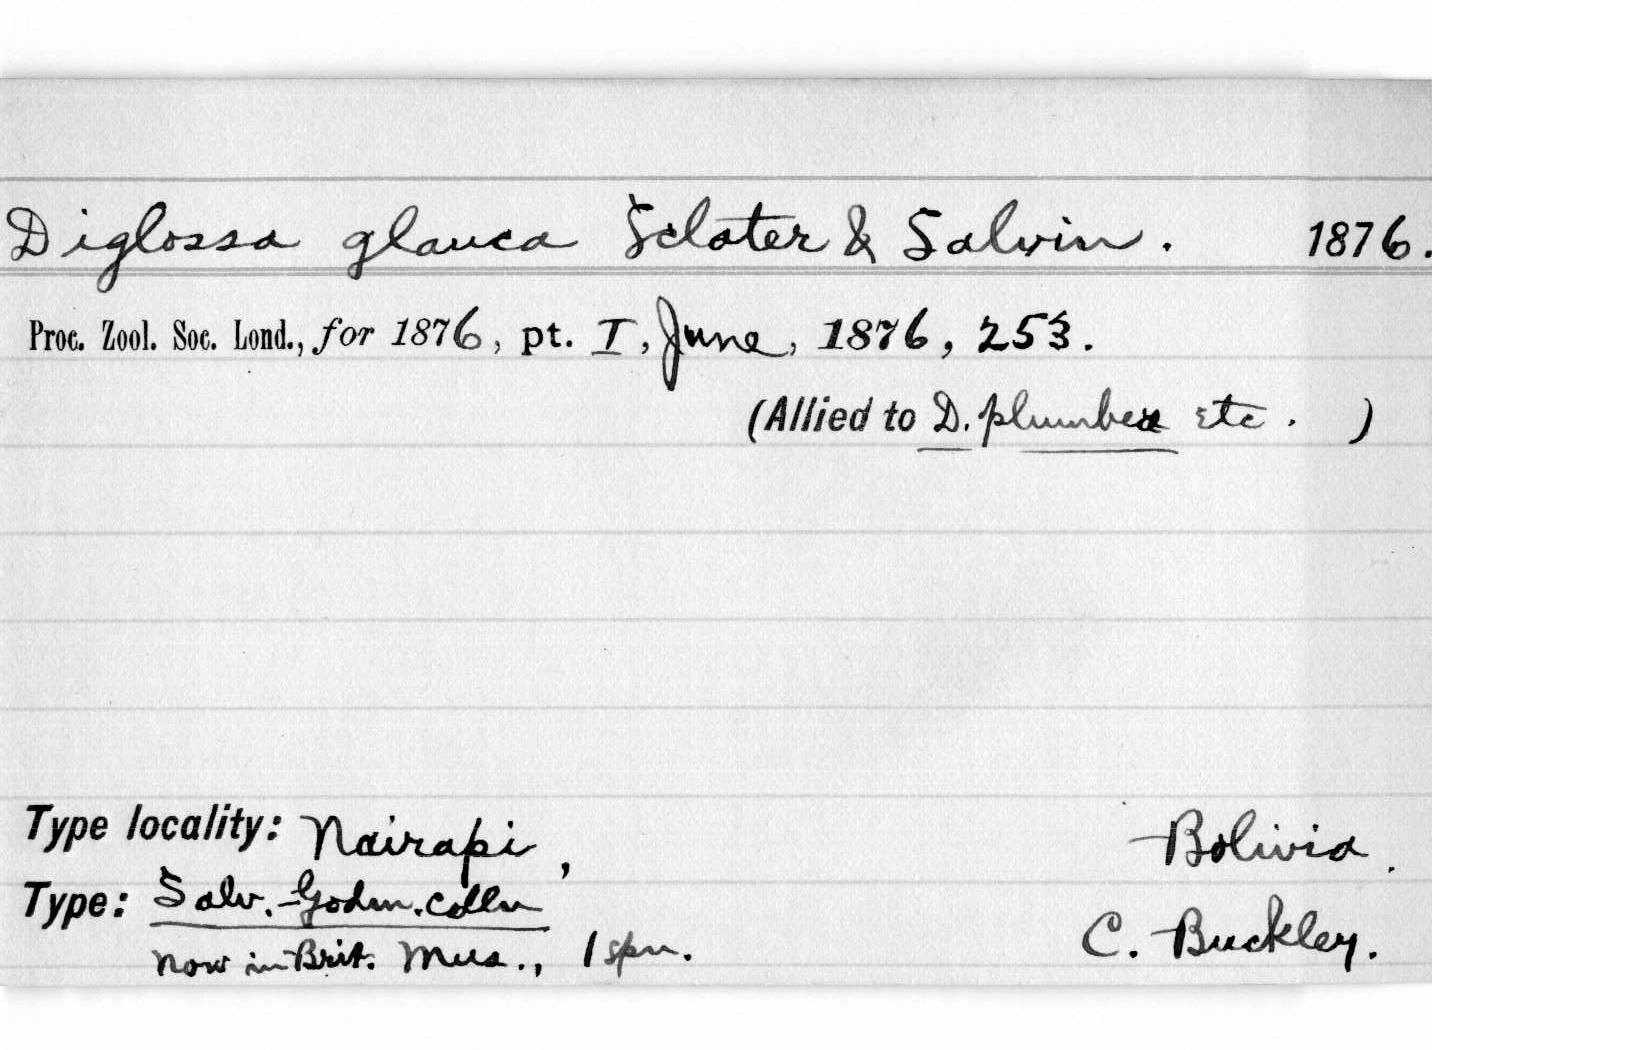 Diglossa glauca Sclater & Salvin. 1876.
Proc. Zool. Soc. Lond., for 1876, pt. I, June, 1876, 253.
(Allied to D. plumbea etc. )
Type locality: Nairapi, Bolivia.
Type: Salv.-Godm. Colln C. Buckley.
now in Brit. Mus., 1 spn.